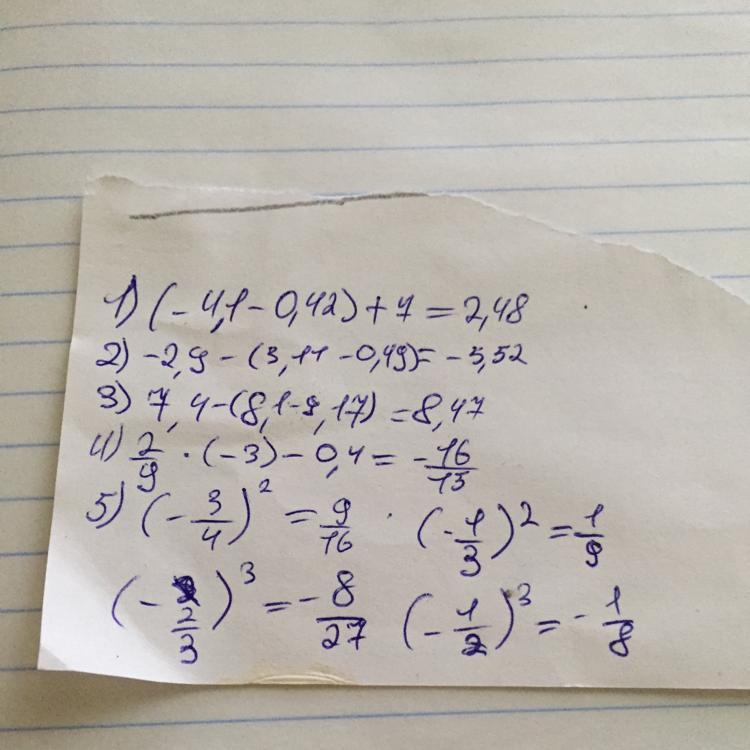 1) (-4,1-0,42)+7=2,48
2) -2,9-(3,11-0,49)=-5,52
3) 7,4-(8,1-9,17)=8,47
4) 2/9 · (-3)-0,4=-16/15
5) (-3/4)²=9/16 · (-1/3)²=1/9
(-2/3)³=-8/27 (-1/2)³=-1/8